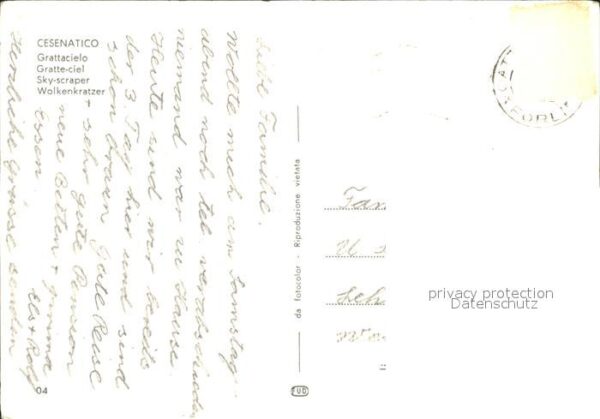 CESENATICO
Grattacielo
Gratte-ciel
Sky-scraper
Wolkenkratzer
Liebe Familie.
Wollte mich am Samstag
abend noch tel. verabschieden
niemand war zu Hause.
Heute sind wir bereits
der 3 Tag hier und sind
schon braun Gute Reise
+ sehr gute Pension
neue Betten + prima
Essen
Herzliche Grüsse senden
Els + Rolf
04
da fotocolor - Riproduzione vietata
FORLI
Fam
privacy protection
Datenschutz